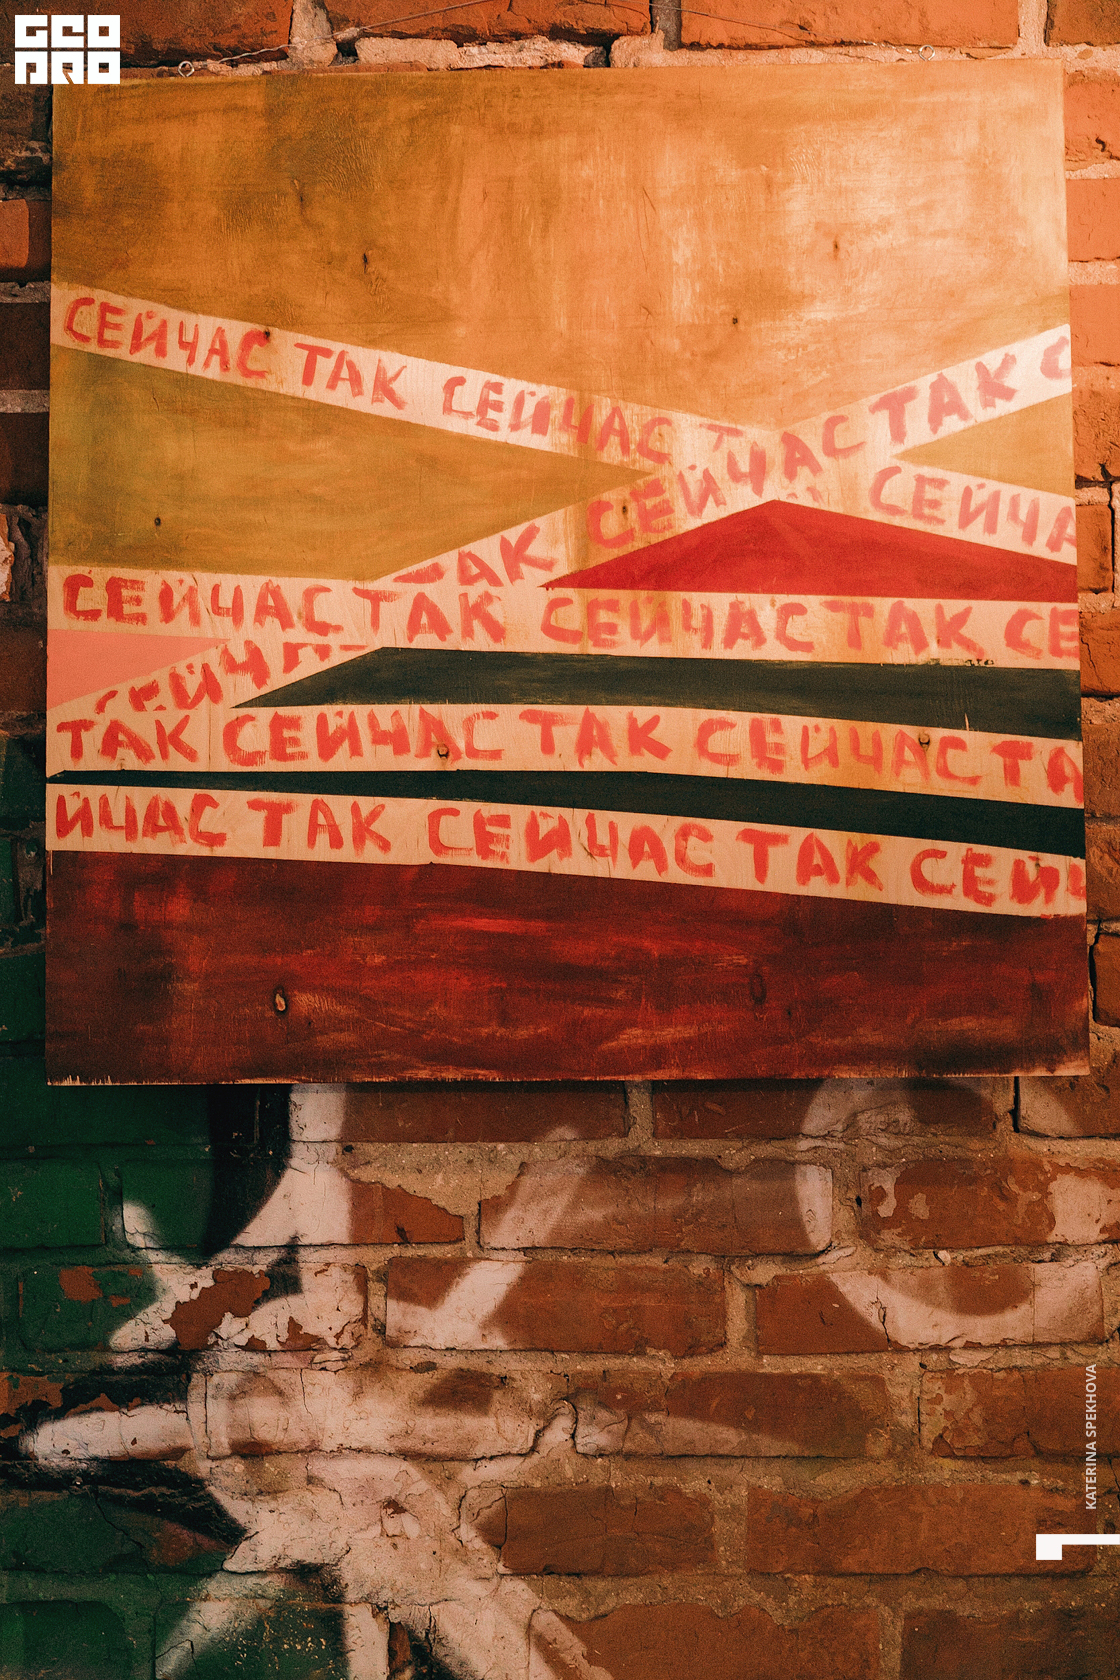 GEO
PRO
СЕЙЧАС ТАК СЕЙЧАС Т
СЕЙЧА
ТАК СЕЙЧАС ТАК С
СЕЙЧАС ТАК СЕЙЧАС ТАК СЕ
СЕЙЧ
ТАК СЕЙЧАС ТАК СЕЙЧАС ТА
ЙЧАС ТАК СЕЙЧАС ТАК СЕЙЧ
KATERINA SPEKHOVA